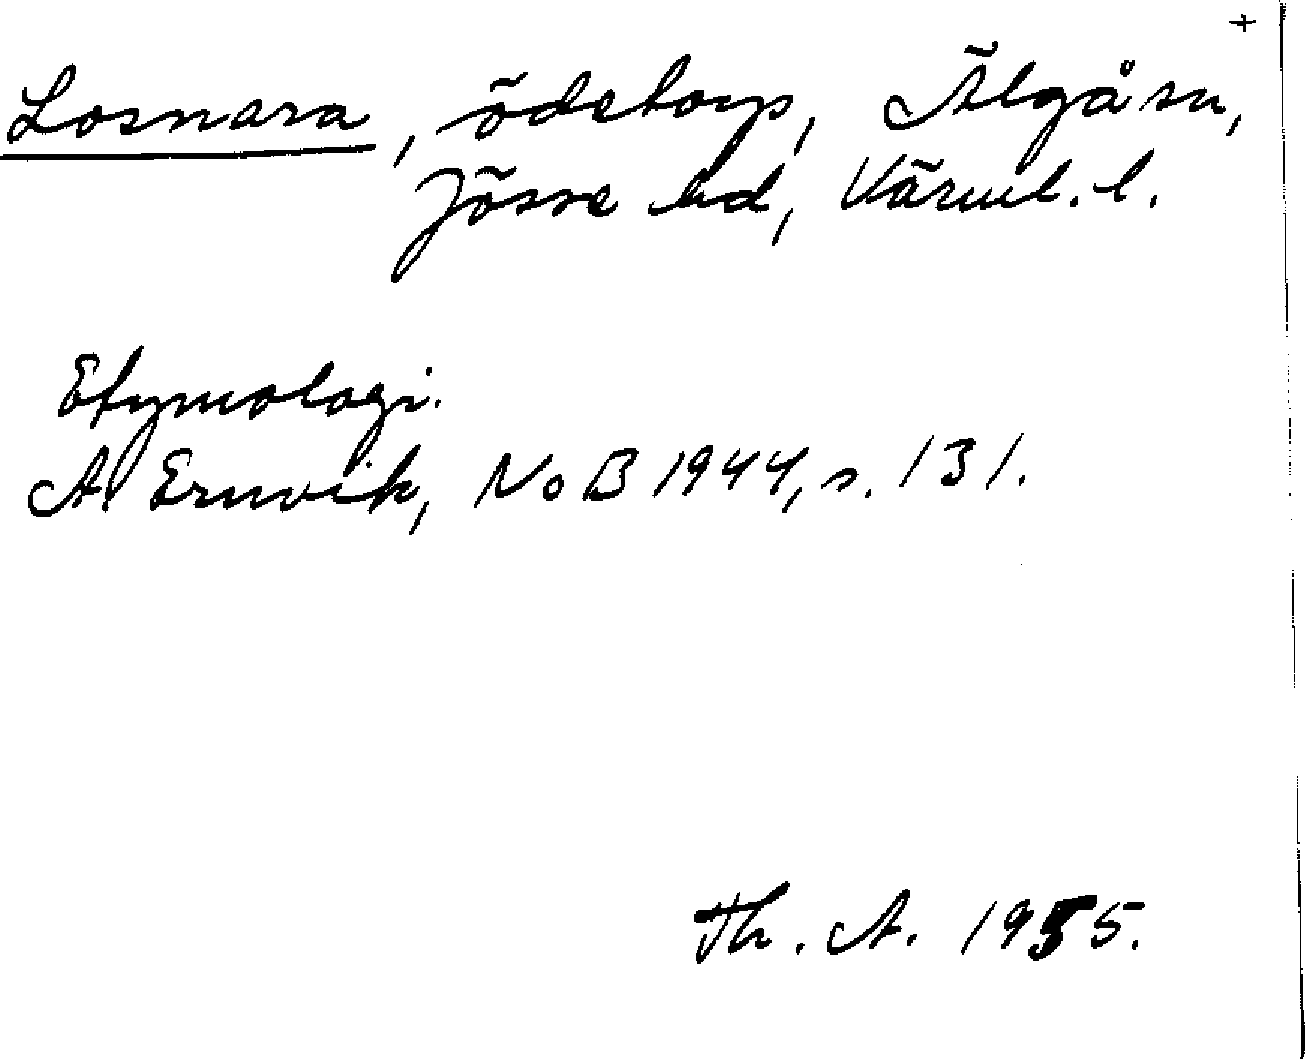 +
Losnara, ödetorp, Älgå sn,
Jösse hd, Värml. l.
Etymologi.
A. Ernvik, NoB 1944, s. 131.
Th. A. 1955.